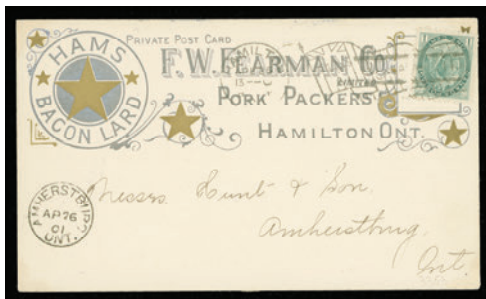 PRIVATE POST CARD
HAMS
BACON LARD
F.W. FEARMAN CO.
LIMITED
PORK PACKERS
HAMILTON ONT.
HAMILTON
13
1
1
AMHERSTBURG
AP 26
01
ONT.
Messrs. Hunt & Son.
Amherstburg.
Ont.